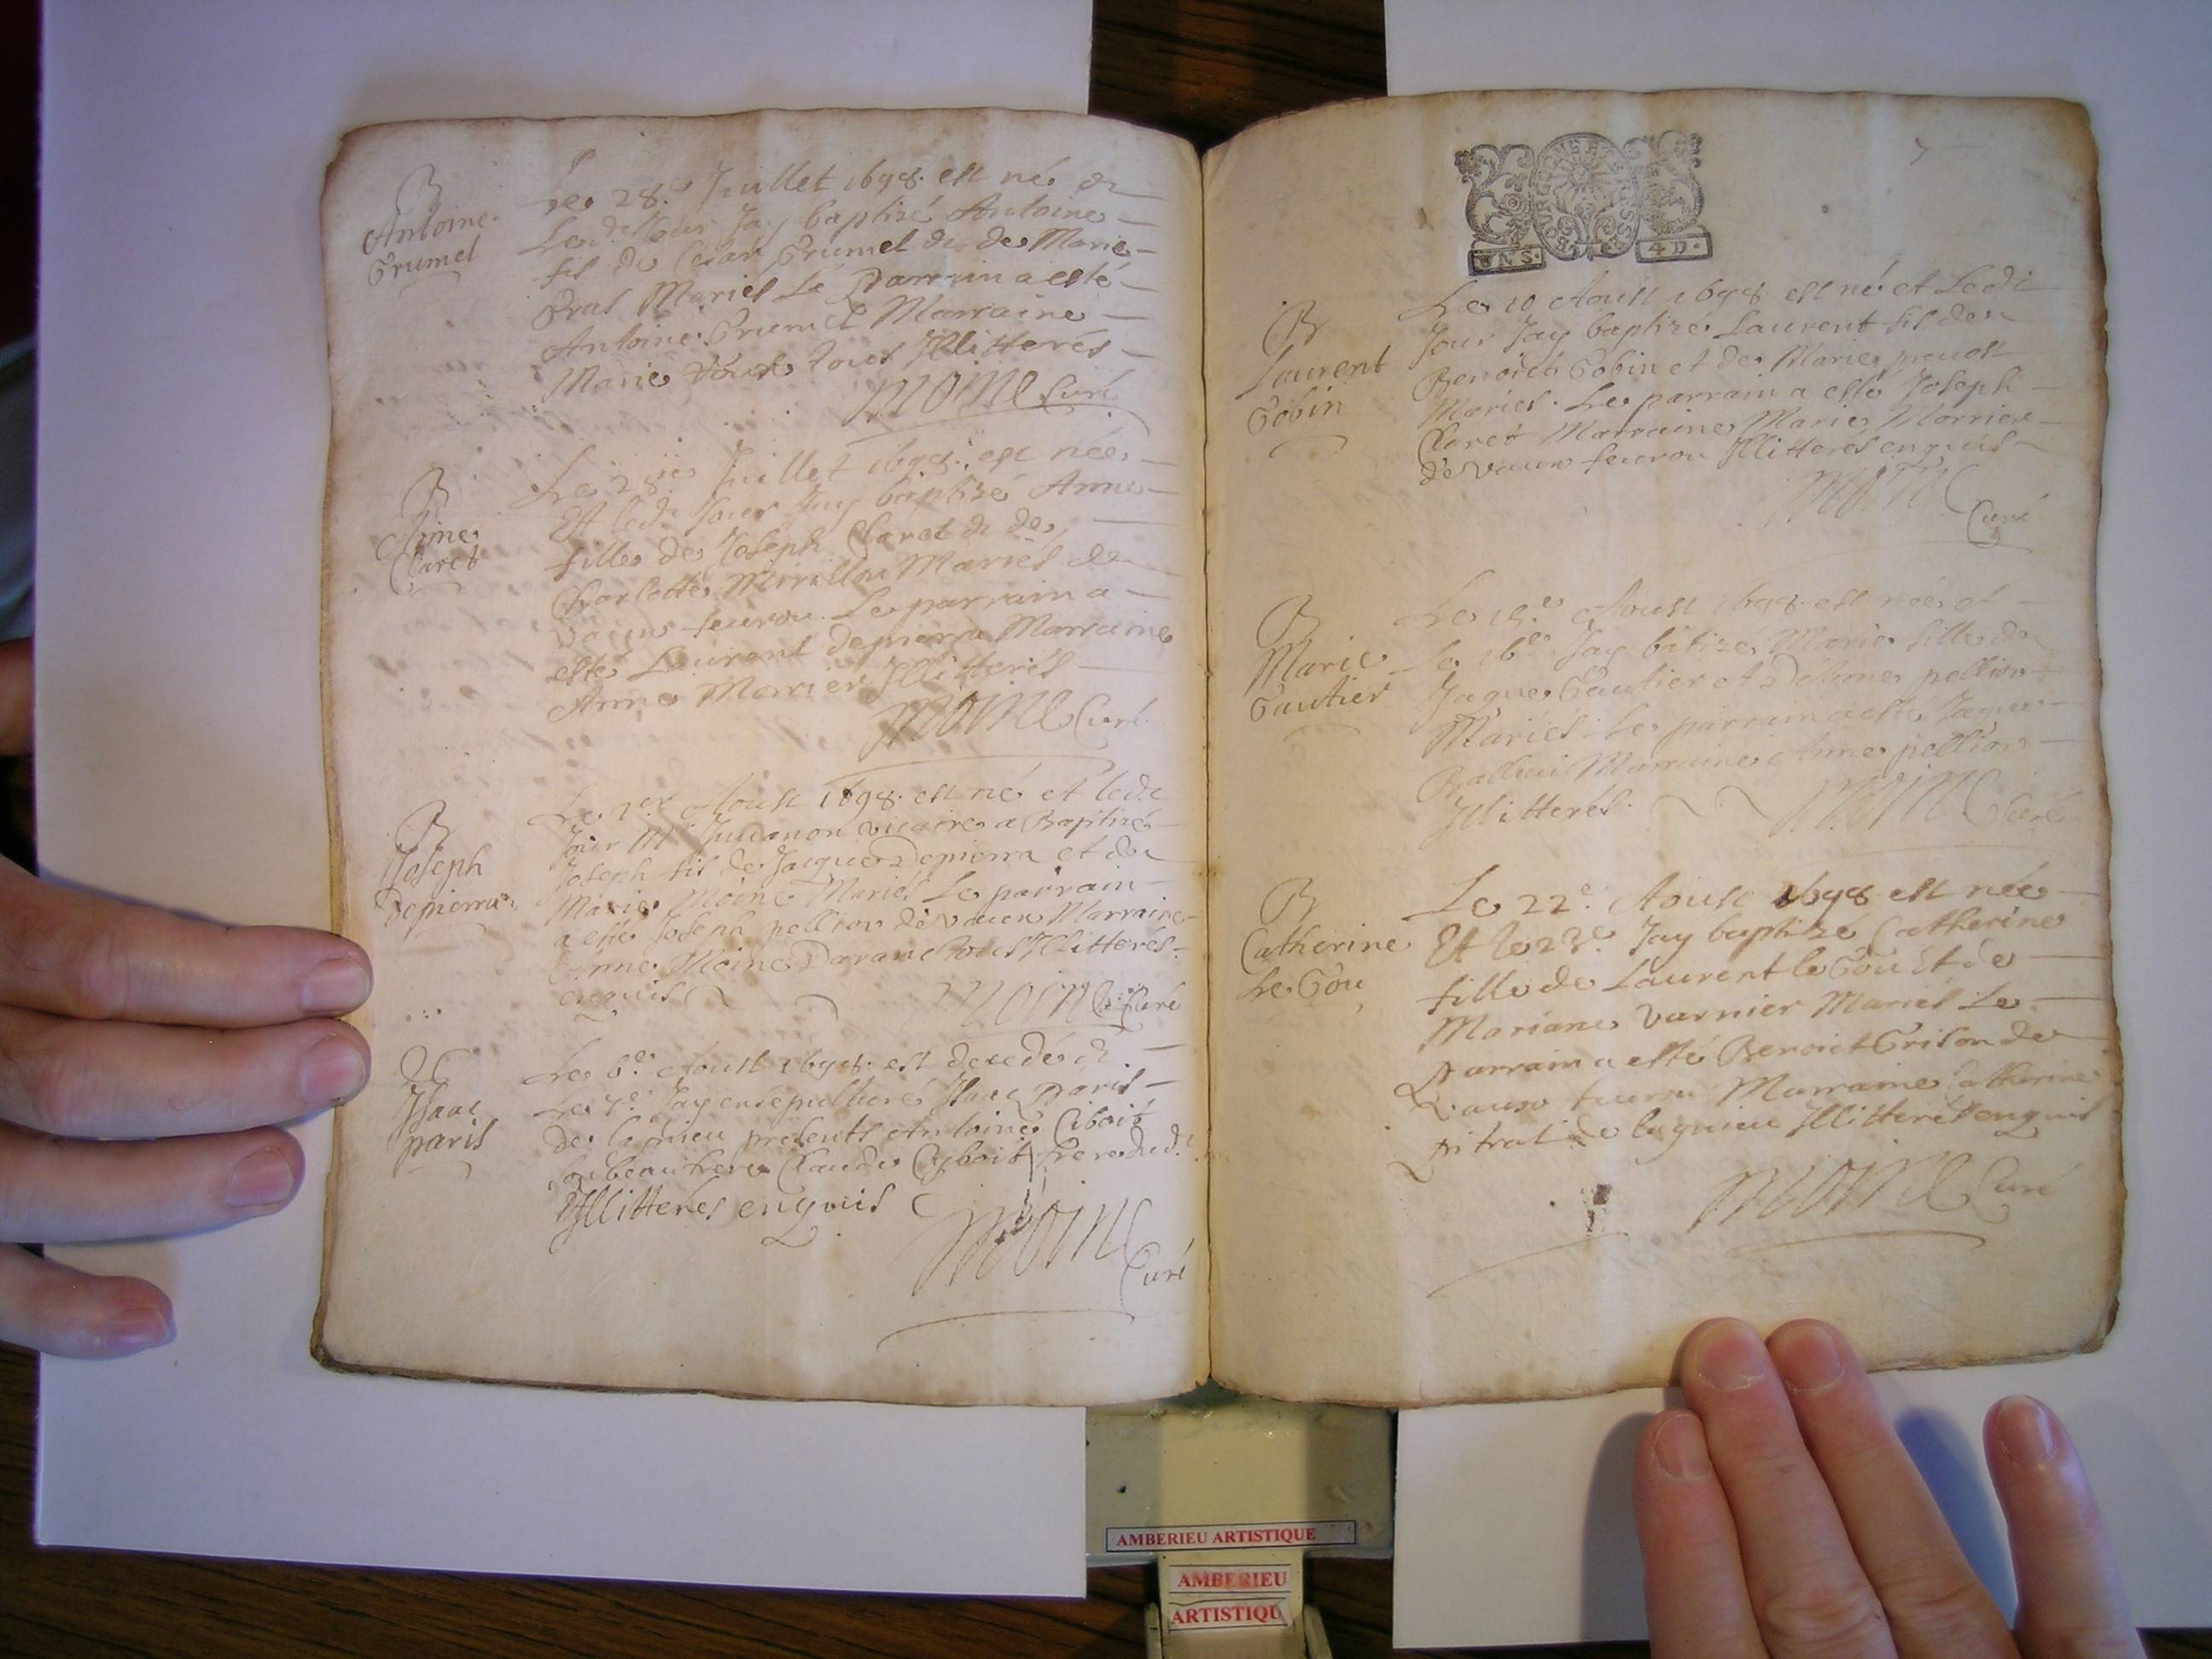 B
Antoine
Grumel
Le 28.e Juillet 1698. est né et
Led. Jour Jay baptizé Antoine
fil de Cesar Grumel et de Marie
Mariés Le Parrain a esté
Antoine Grumel Marraine
Marie tous Illitterés
Moine Curé
B
Anne
Claret
Le 28.e Juillet 1698. est née
Et ledi Jour Jay baptizé Anne
fille de Joseph Claret et de
Charlotte Mirillon Mariés de
Vaux feurou. Le parrain a
esté Laurent Depierra Marraine
Anne Morrier Illitterés
Moine Curé
B
Joseph
Depierra
Le 1.er Aoust 1698. est né et ledi
Jour Mr. Juuanon vicaire a Baptizé
Joseph fil de Jaque Depierra et de
Marie Moine Mariés Le parrain
a esté Joseph pellion de Vaux Marraine
Anne Moine Darane tous Illitterés
enquis
Moine Curé
Isaac
paris
Le 6.e Aoust 1698. est decedé et
Le 7.e Jay ensepulturé Isaac Paris
de lagnieu presents Antoine Ciboit
son beaufrere Claude Cyboit frere dud.
Illitteres enquis
Moine
Curé
7
BOURGOGNE ET BRESSE
UN S. 4 D.
B
Laurent
Gobin
Le 10 Aoust 1698. est né et Ledi
Jour Jay baptizé Laurent fil de
Benoict Gobin et de Marie preuost
Mariés. Le parrain a esté Joseph
Claret Marraine Marie Morrier
de Vaux feurou Illitterés enquis
Moine
Curé
B
Marie
Gautier
Le 15.e Aoust 1698. est née et
Le 16.e Jay batizé Marie fille de
Jaque Gautier et D'Anne pellion
Mariés. Le parrain a esté Jaque
Marraine Anne pellion
Illitterés.
Moine Curé
B
Catherine
Le Gou
Le 22.e Aoust 1698. est née
Et le 23.e Jay baptizé Catherine
fille de Laurent le Gou Et de
Mariane Varnier Mariés Le
Parrain a esté Benoict Grison de
Vaux feurou Marraine Catherine
pitrat de lagnieu Illitterés enquis
Moine Curé
AMBERIEU ARTISTIQUE
AMBERIEU
ARTISTIQU